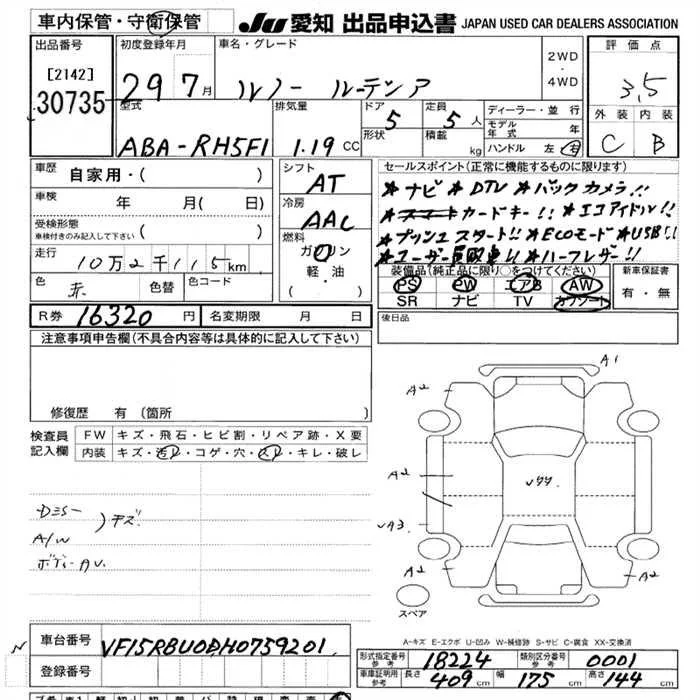 車内保管・守衛保管
JU 愛知 出品申込書 JAPAN USED CAR DEALERS ASSOCIATION
出品番号
[2142]
30735
初度登録年月
29 7月
車名・グレード
ルノー ルーテシア
2WD
・
4WD
評価点
3.5
外装 内装
C B
型式
ABA-RH5F1
排気量
1.19 CC
ドア 5
形状
定員 5人
積載 kg
ディーラー・並行
モデル年式 年
ハンドル 左・右
車歴
自家用・( )
車検
年 月( 日)
受検形態
車検付きのみ記入して下さい
( )
走行
10万2千115km
色 赤
色替
色コード
シフト
AT
冷房
AAC
燃料
ガソリン
軽・油
( ・ )
セールスポイント(正常に機能するものに限ります)
★ナビ ★DTV ★バックカメラ!!
カードキー!! ★エコアイドル!!
★プッシュスタート!! ★ECOモード ★USB!!
★ユーザー買取車!! ★ハーフレザー!!
装備品(純正品に限り○をつけてください)
PS PW エアB AW
SR ナビ TV カワシート
新車保証書
有・無
R券 16320円
名変期限 月 日
後日品
注意事項申告欄(不具合内容等は具体的に記入して下さい)
修復歴 有(箇所 )
検査員
記入欄
FW キズ・飛石・ヒビ割・リペア跡・X要
内装 キズ・汚れ・コゲ・穴・スレ・キレ・破レ
キズ
A/W
A1
A2
A2
A2
A3
A2
A2
スペア
A-キズ E-エクボ U-凹み W-補修跡 S-サビ C-腐食 XX-交換済
車台番号
VF15RBU0DH0759201
登録番号
形式指定番号 参考
18224
類別区分番号 参考
0001
車庫証明用 参考
長さ 409cm
幅 175cm
高さ 144cm